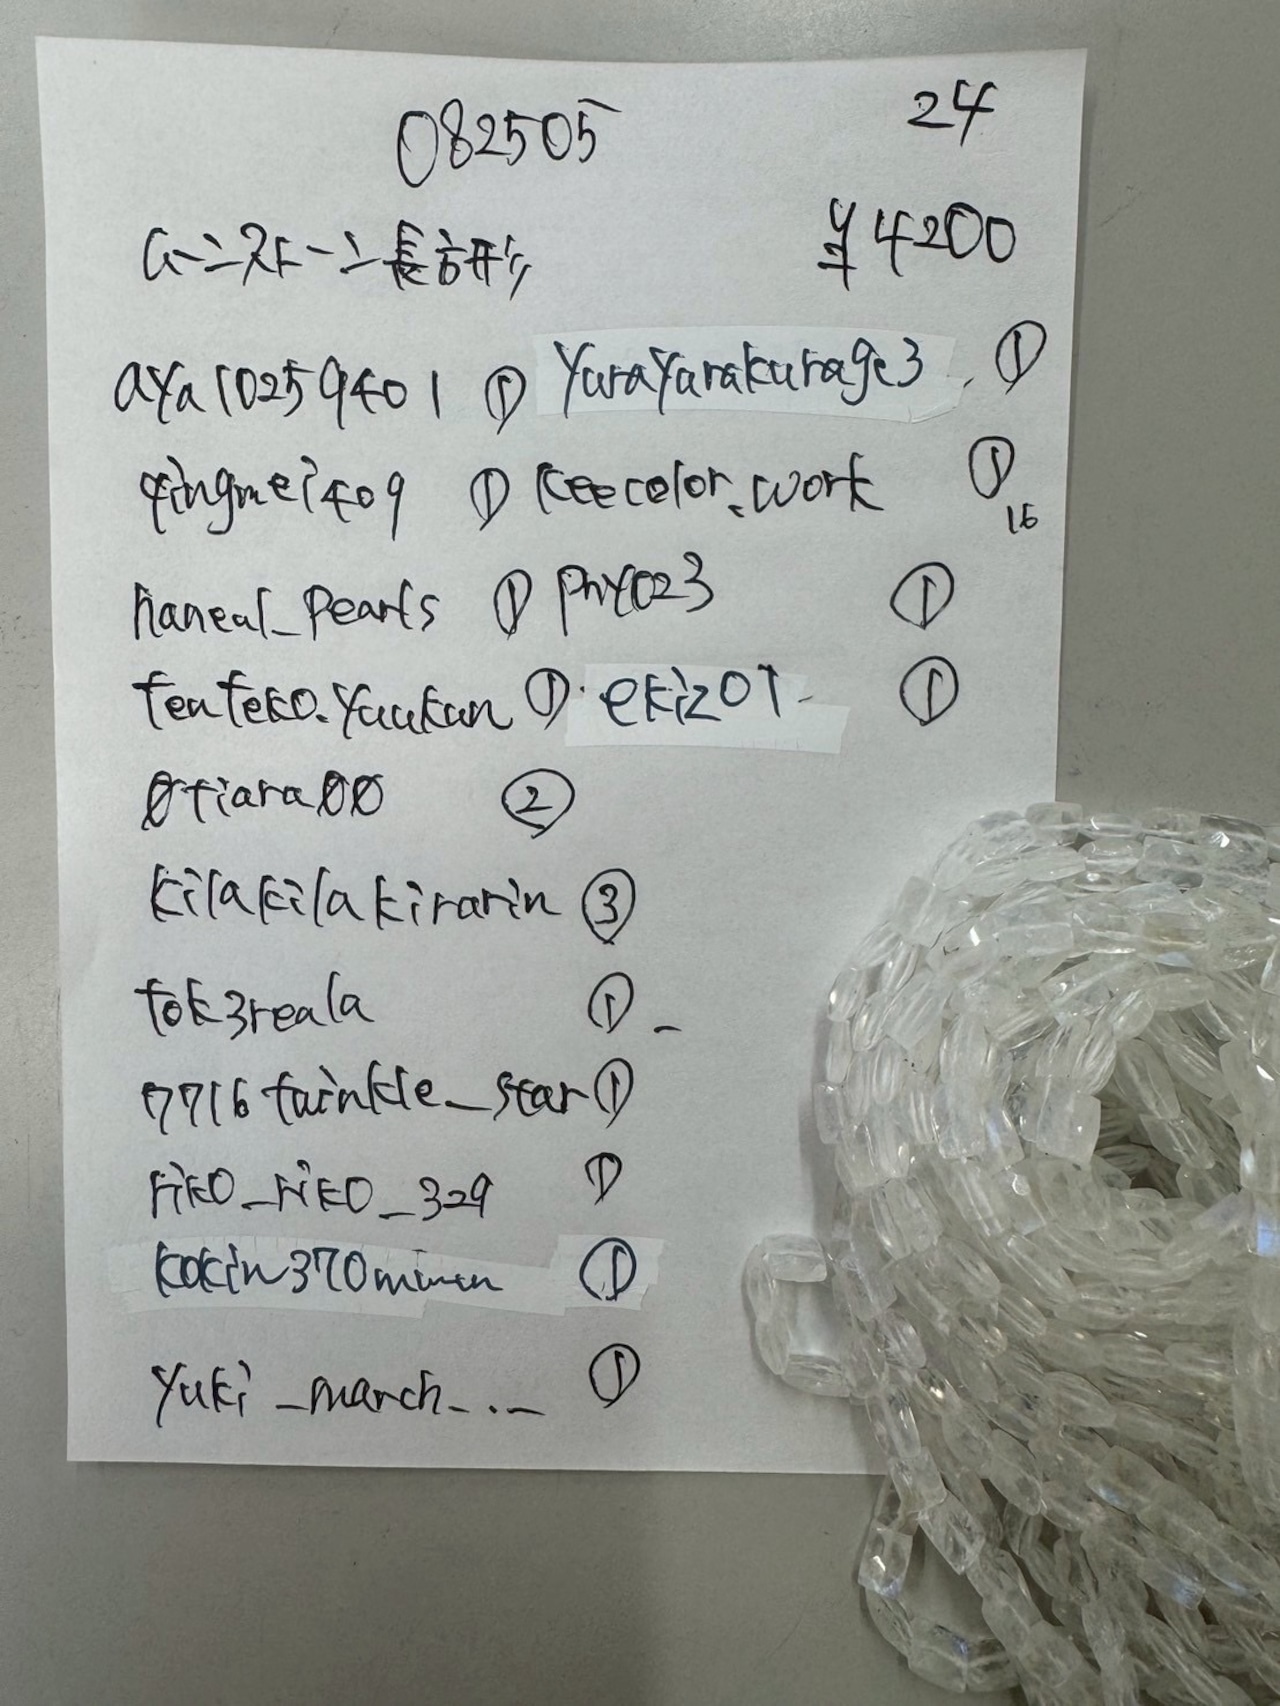 082505 24
ムーンストーン長方形 ¥4200
aya10259401 ① yurayurakurage3 ①
qingmei409 ① keecolor.work ①
16
haneal_pearls ① phy023 ①
tenteko.yuukun ① ekiz01 ①
0tiara00 ②
kilakilakirarin ③
tok3reala ①
7716twinkle_star ①
riko_riko_329 ①
kokin370minmin ①
yuki_march_._ ①